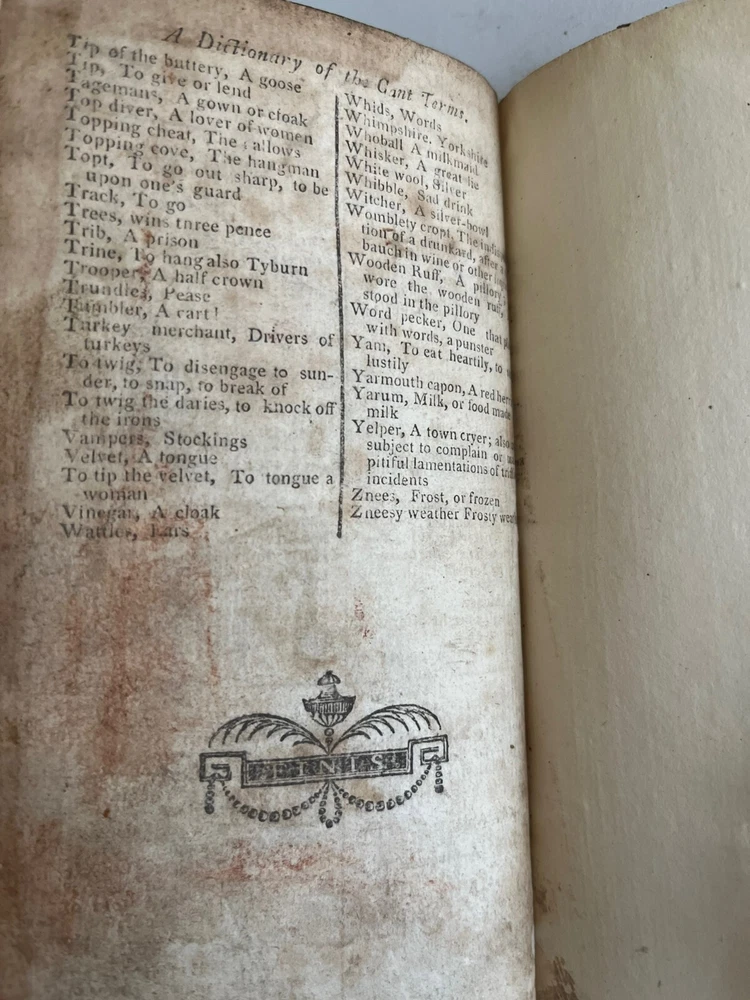 A Dictionary of the Cant Terms.
Tip of the buttery, A goose
Tip, To give or lend
Togemans, A gown or cloak
Top diver, A lover of women
Topping cheat, The allows
Topping cove, The hangman
Topt, To go out sharp, to be
upon one's guard
Track, To go
Trees, wins three pence
Trib, A prison
Trine, To hang also Tyburn
Trooper, A half crown
Trundles, Pease
Tumbler, A cart!
Turkey merchant, Drivers of
turkeys
To twig, To disengage to sun-
der, to snap, to break of
To twig the daries, to knock off
the irons
Vampers, Stockings
Velvet, A tongue
To tip the velvet, To tongue a
woman
Vinegar, A cloak
Wattles, Ears
Whids, Words
Whimpshire. Yorkshire
Whoball A milkmaid
Whisker, A great lie
White wool, Silver
Whibble, Sad drink
Witcher, A silver-bowl
Womblety cropt, The
tion of a drunkard, after
bauch in wine or other
Wooden Ruff, A pillory
wore the wooden ruff,
stood in the pillory
Word pecker, One that
with words, a punster
Yam, To eat heartily, to
lustily
Yarmouth capon, A red
Yarum, Milk, or food made
milk
Yelper, A town cryer; also
subject to complain or
pitiful lamentations of
incidents
Znees, Frost, or frozen
Zneesy weather Frosty
FINIS.